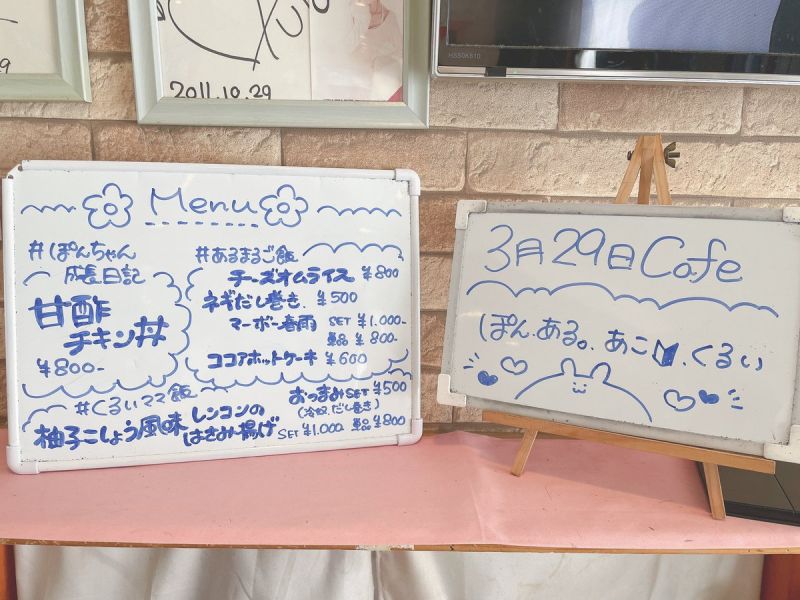 2011.10.29
HSS0K810
Menu
#ぽんちゃん
成長日記
甘酢
チキン丼
¥800-
#あるまるご飯
チーズオムライス ¥800
ネギだし巻き. ¥500
マーボー春雨 SET ¥1.000-
単品 ¥800-
ココアホットケーキ ¥600
#くるいママ飯
おつまみSET ¥500
(冷奴.だし巻き)
柚子こしょう風味 レンコンの
はさみ揚げ SET ¥1.000. 単品 ¥800
3月29日Cafe
ぽん.ある。あこ.くるい